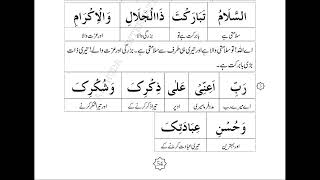 اَلسَّلَامُ تَبَارَكْتَ ذَاالْجَلَالِ وَالْاِكْرَامِ
سلامتی ہے بابرکت ہے تو بزرگی والا اور عزت والے
اے اللہ! تو سلامتی والا ہے اور تیری ہی طرف سے سلامتی ہے۔ بزرگی اور عزت والے! تیری ذات
بڑی بابرکت ہے۔
رَبِّ اَعِنِّيْ عَلٰى ذِكْرِكَ وَشُكْرِكَ
اے میرے رب مدد فرما میری اوپر تیرا ذکر کرنے کے اور تیرا شکر کرنے
وَحُسْنِ عِبَادَتِكَ
اور بہترین تیری عبادت کرنے کے
54